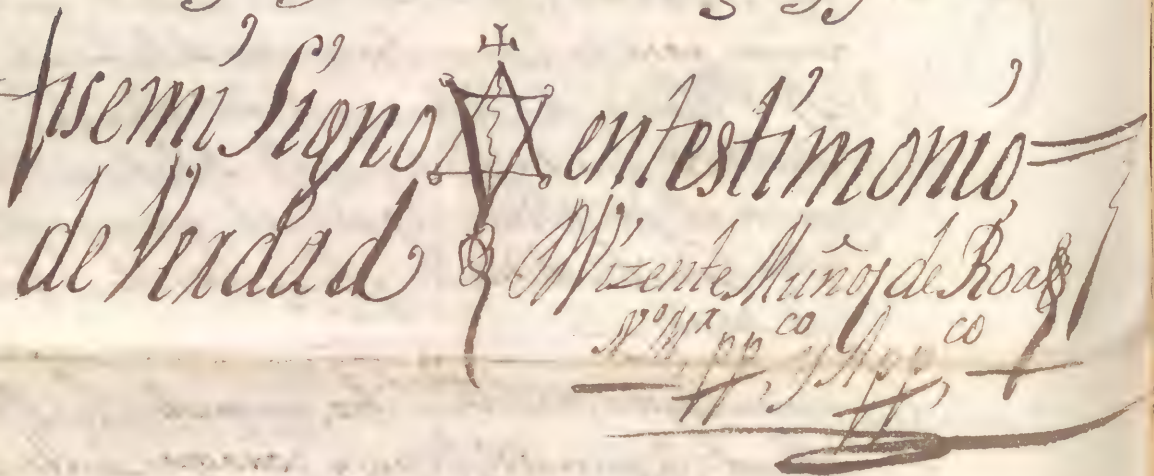 puse mi Signo en testimonio
de Verdad
Vizente Muñoz de Roa